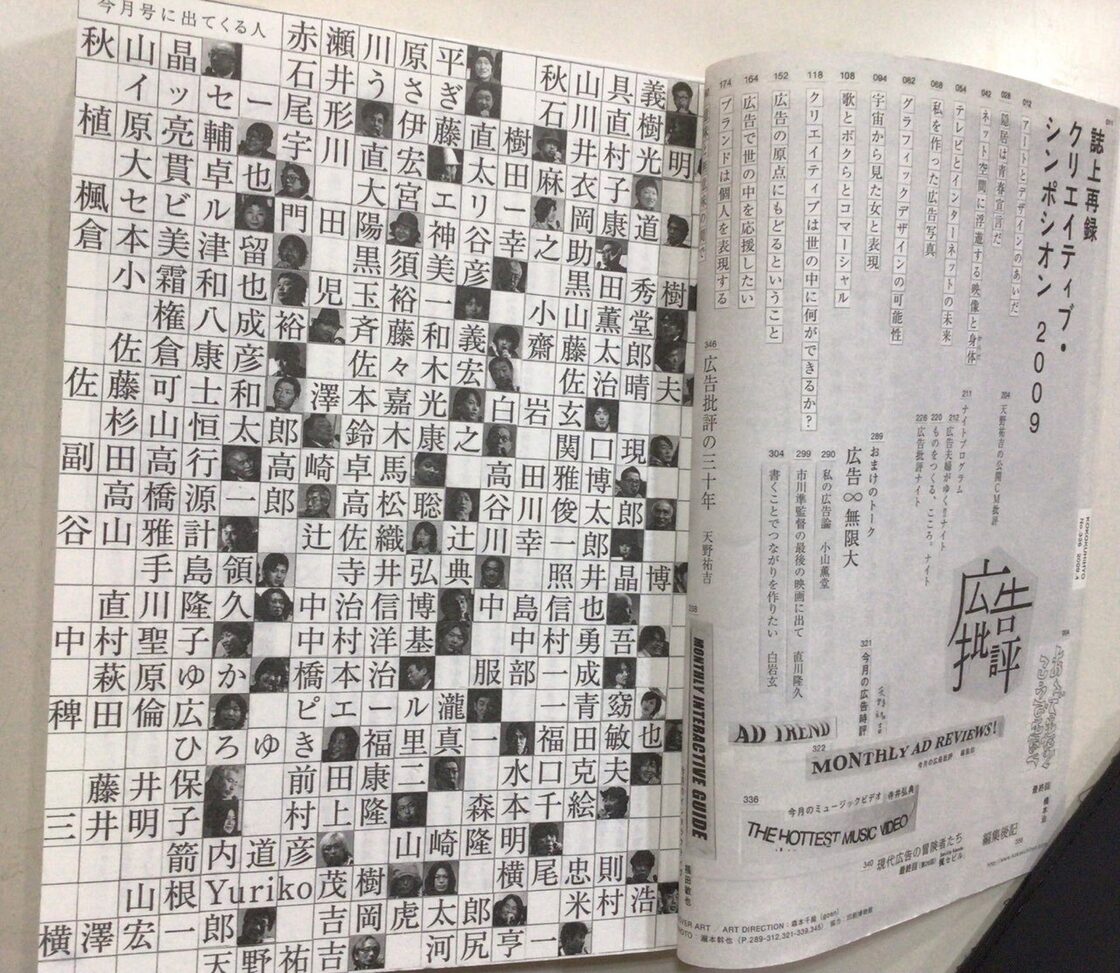 今月号に出てくる人
赤瀬川原平
秋山具義
秋山晶
石井うさぎ
石川直樹
イッセー尾形
伊藤直樹
井村光明
植原亮輔
宇川直宏
太田麻衣子
大貫卓也
大宮エリー
岡康道
楓セビル
門田陽
神谷幸之助
倉本美津留
黒須美彦
黒田秀樹
小霜和也
児玉裕一
小山薫堂
権八成裕
斉藤和義
小齋藤太郎
佐倉康彦
佐々木宏
佐治晴夫
佐藤可士和
澤本嘉光
白岩玄
杉山恒太郎
鈴木康之
関口現
副田高行
高崎卓馬
高田雅博
高橋源一郎
高松聡
谷川俊太郎
谷山雅計
辻佐織
辻川幸一郎
手島領
寺井弘典
照井晶博
直川隆久
中治信博
中島信也
中村聖子
中村洋基
中村勇吾
萩原ゆか
橋本治
服部一成
稗田倫広
ピエール瀧
一青窈
ひろゆき
福里真一
福田敏也
藤井保
前田康二
水口克夫
三井明子
村上隆
森本千絵
箭内道彦
山崎隆明
横尾忠則
山根Yuriko茂樹
米村浩
横澤宏一郎
吉岡虎太郎
河尻亨一
天野祐吉
誌上再録
クリエイティブ・
シンポシオン 2009
012 アートとデザインのあいだ
028 隠居は青春宣言だ
042 ネット空間に浮遊する映像と身体
054 テレビとインターネットの未来
068 私を作った広告写真
082 グラフィックデザインの可能性
094 宇宙から見た女と表現
108 歌とボクらとコマーシャル
118 クリエイティブは世の中に何ができるか?
152 広告の原点にもどるということ
164 広告で世の中を応援したい
174 ブランドは個人を表現する
204 天野祐吉の公開CM批評
211 ナイトプログラム
212 広告夫婦がゆく!!ナイト
220 ものをつくる、こころ。ナイト
226 広告批評ナイト
289 おまけのトーク
広告∞無限大
290 私の広告論 小山薫堂
299 市川準監督の最後の映画に出て 直川隆久
304 書くことでつながりを作りたい 白岩玄
346 広告批評の三十年 天野祐吉
広告批評
321 今月の広告時評
AD TREND
322
MONTHLY AD REVIEWS!
今月の広告批評
336
今月のミュージックビデオ 寺井弘典
THE HOTTEST MUSIC VIDEO
338
MONTHLY INTERACTIVE GUIDE
福田敏也
340 現代広告の冒険者たち
楓セビル
最終回 橋本治
編集後記
COVER ART / ART DIRECTION：森本千絵 (goen)
PHOTO：瀧本幹也 (P.289-312,321-339,345)